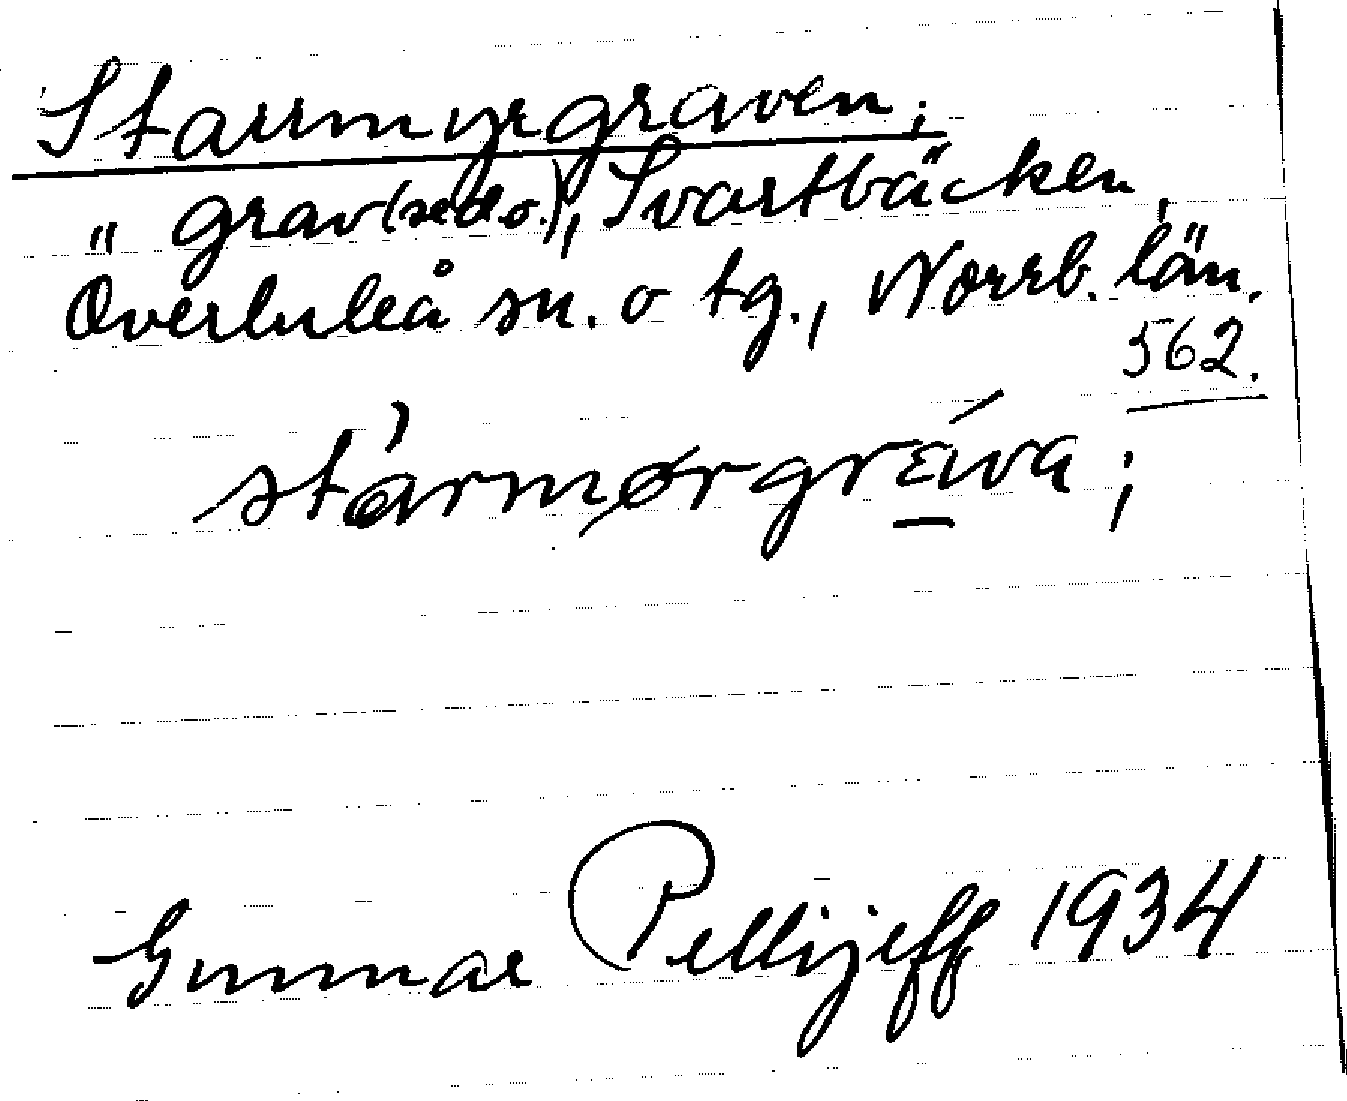 Starrmyrgraven;
" grav (se d.o.), Svartbäcken,
Överluleå sn. o tg., Norrb. län.
562.
starmørgrɛiva;
Gunnar Pellijeff 1934